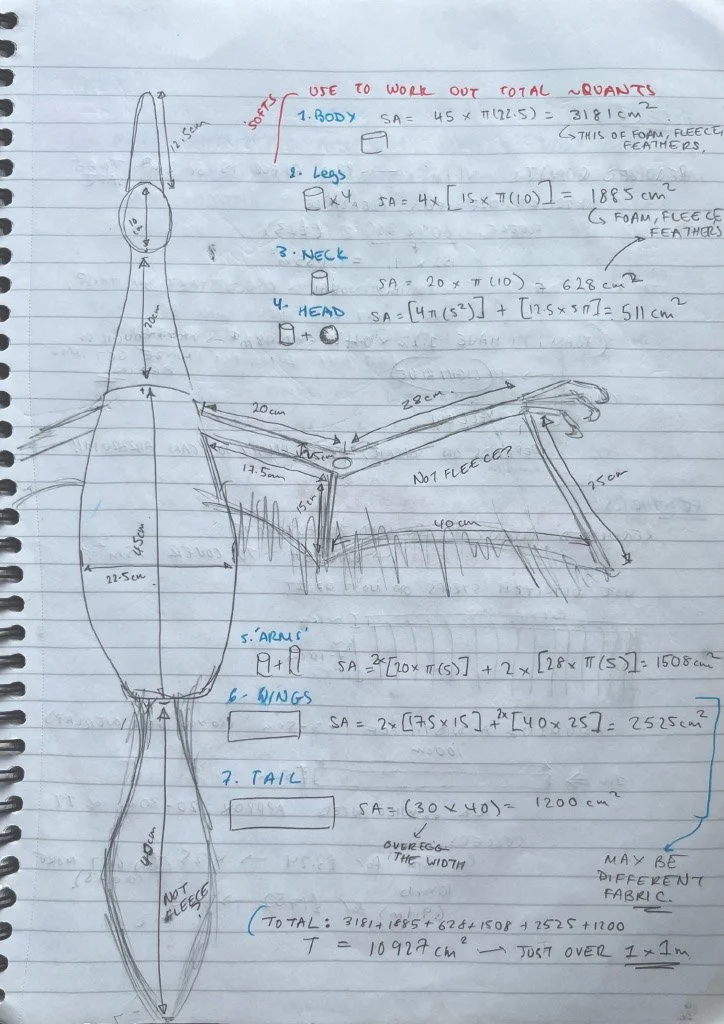 USE TO WORK OUT TOTAL ~QUANTS
SOFTS
1. BODY SA = 45 x π(22.5) = 3181 cm²
↳ THIS OF FOAM, FLEECE,
FEATHERS.
2. Legs
x4 SA = 4x [15 x π(10)] = 1885 cm²
↳ FOAM, FLEECE
FEATHERS
3. NECK
SA = 20 x π(10) = 628 cm²
4. HEAD SA = [4π(5²)] + [12.5 x 5π] = 511 cm²
+
12.5cm
10cm
20cm
20cm
28cm
17.5cm
15cm
NOT FLEECE?
25cm
40cm
45cm
22.5cm
5. 'ARMS'
+ SA = 2x[20 x π(5)] + 2 x [28 x π(5)] = 1508 cm²
6. WINGS
SA = 2x [17.5 x 15] + 2x [40 x 25] = 2525 cm²
7. TAIL
SA = (30 x 40) = 1200 cm²
OVEREGG
THE WIDTH
MAY BE
DIFFERENT
FABRIC.
40cm
NOT
FLEECE?
(TOTAL: 3181 + 1885 + 628 + 1508 + 2525 + 1200
T = 10927 cm² → JUST OVER 1 x 1m